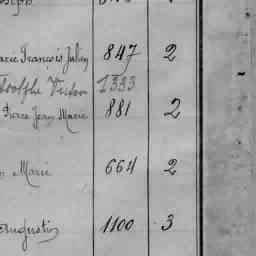 François Julien 847 2
Adolphe Victor 1333
Pierre Jean Marie 881 2
Marie 664 2
Augustin 1100 3